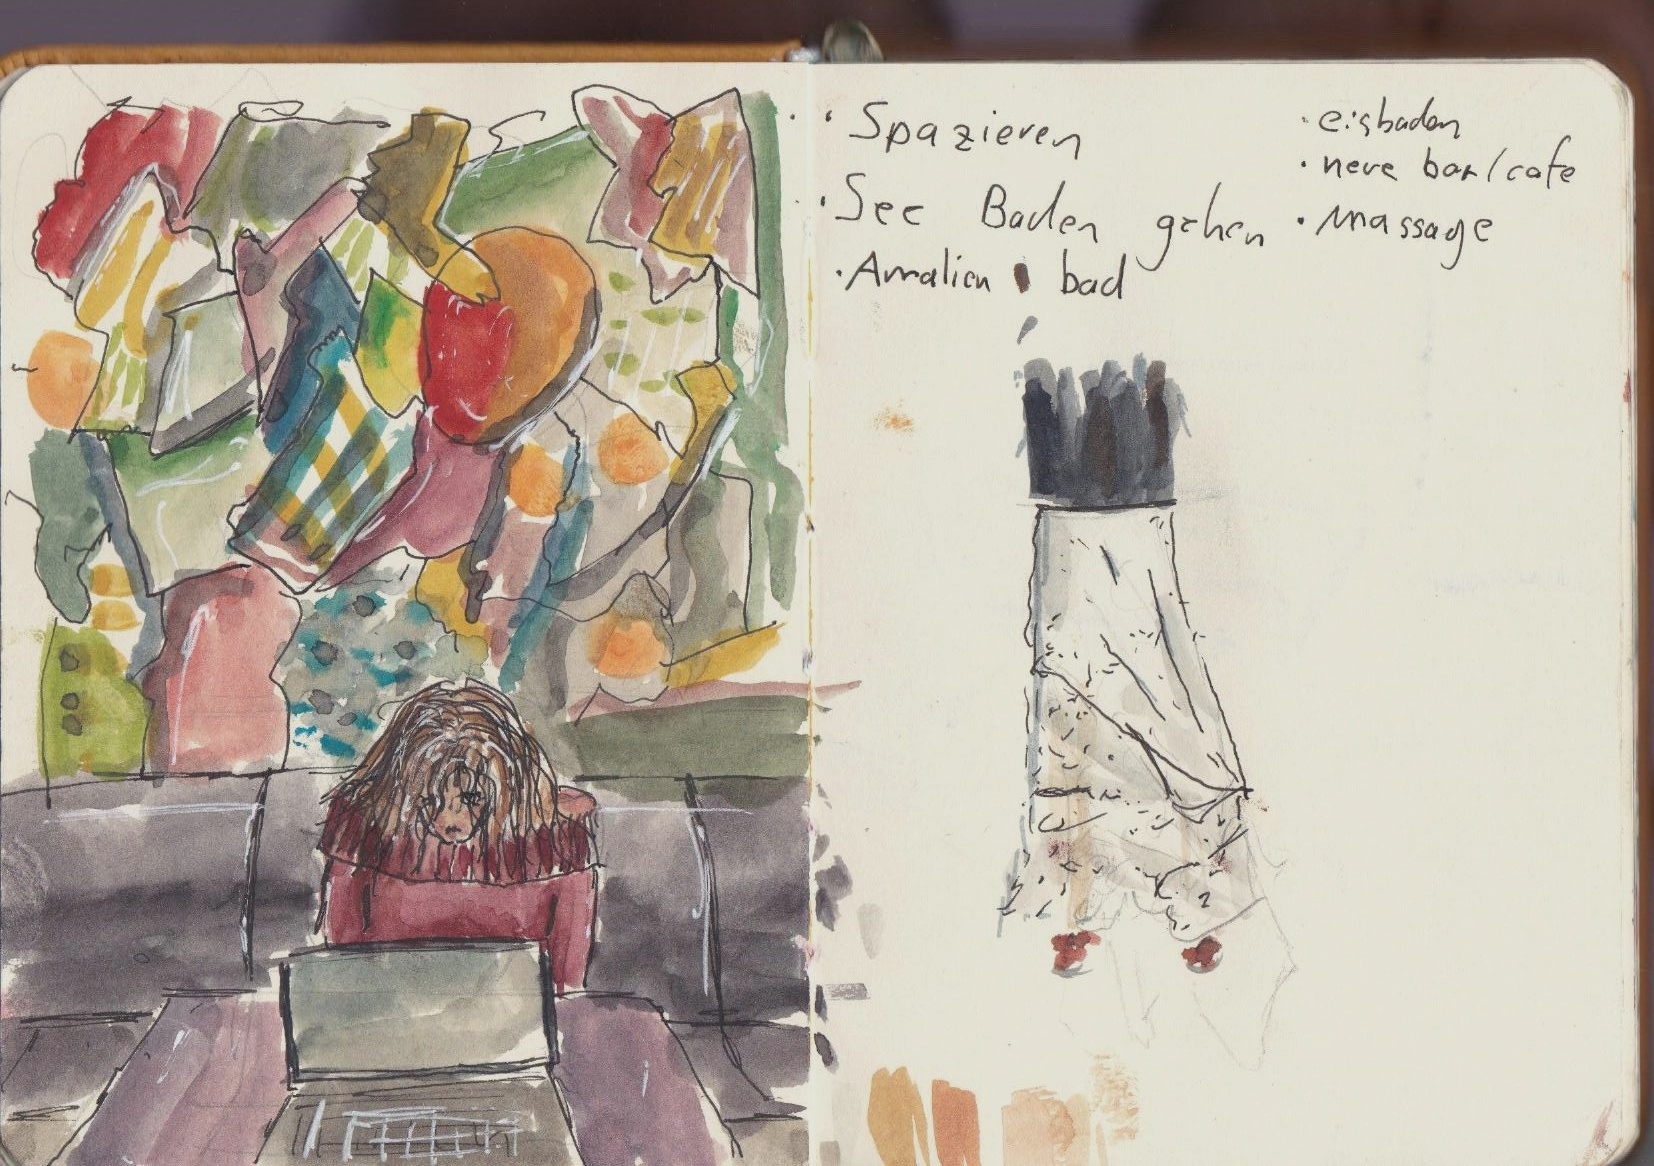 · Spazieren
· See Baden gehen
· Amalien bad
· eisbaden
· neue bar/cafe
· Massage